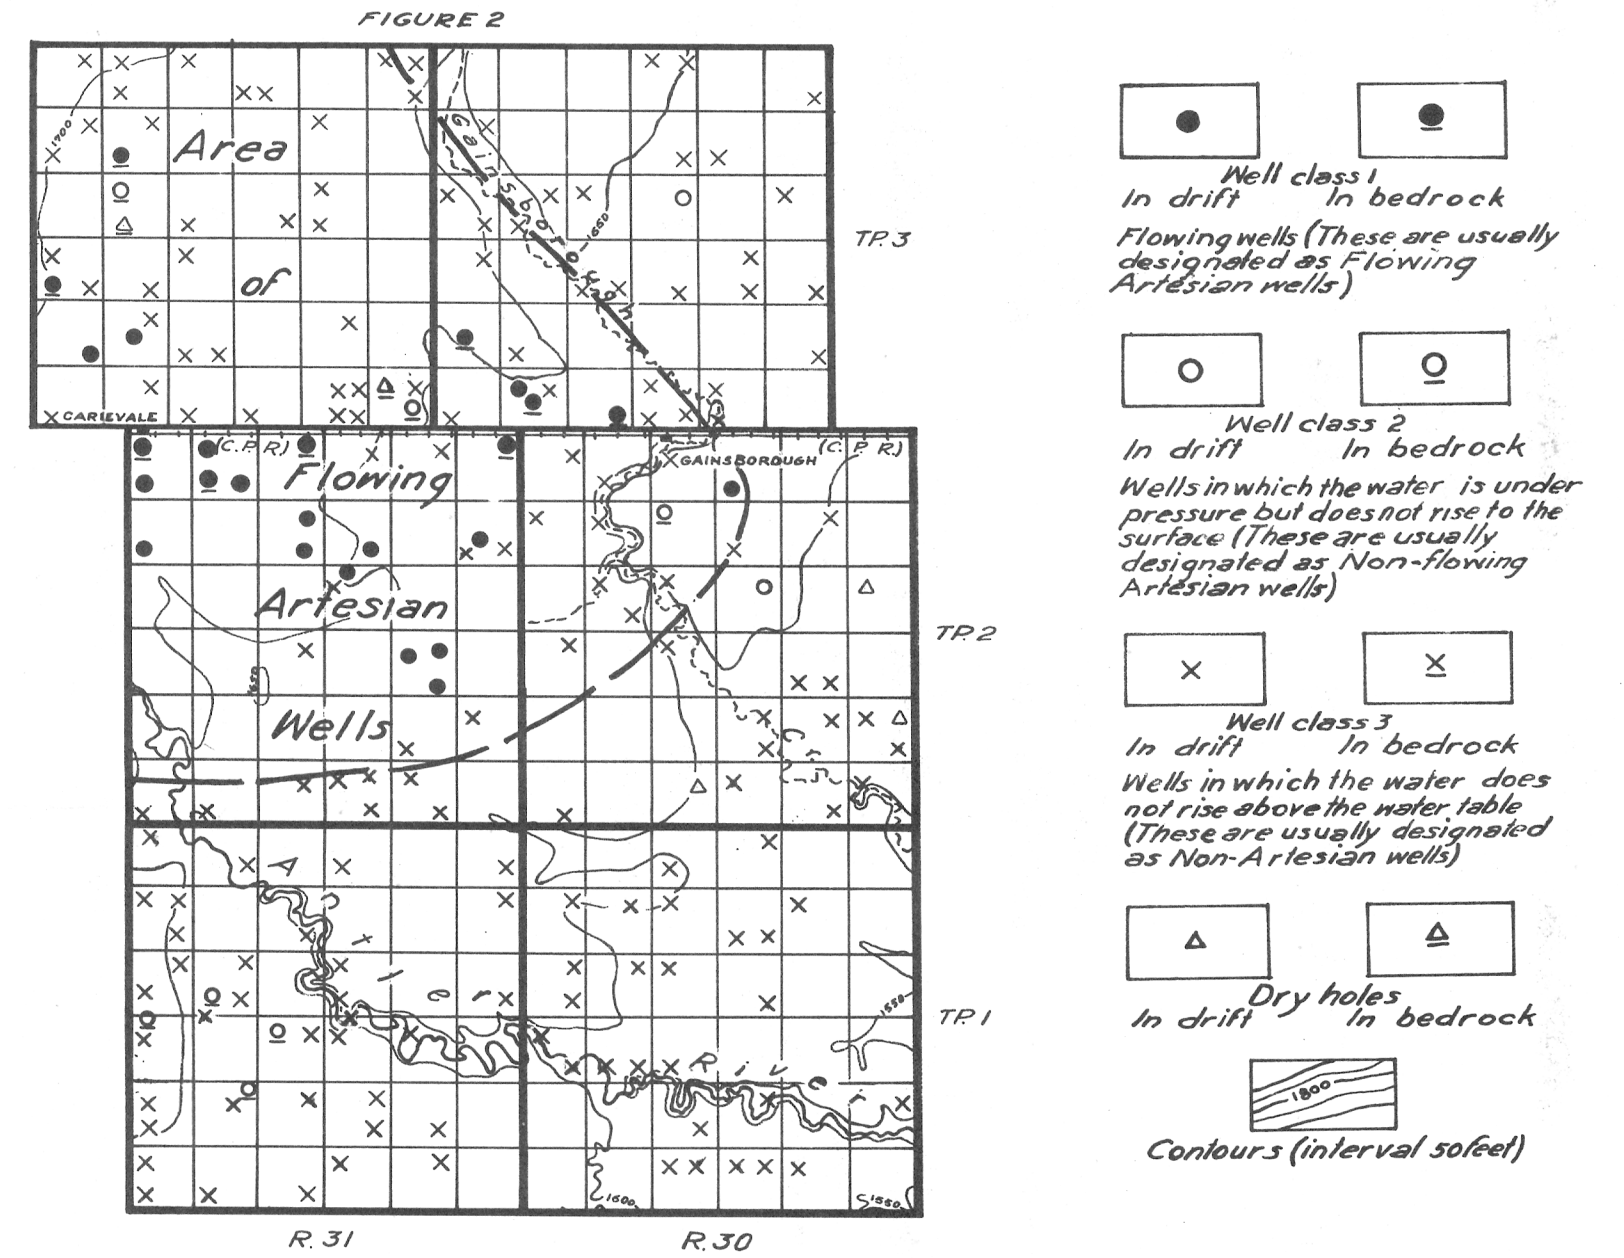 FIGURE 2
1700
Area
of
Gainsborough
1650
TP. 3
CARIEVALE
(C.P.R.)
Flowing
GAINSBOROUGH
(C.P.R.)
Artesian
TP. 2
1650
Wells
Cr.
Antler
TP. 1
1550
River
1600
1550
R. 31
R. 30
Well class 1
In drift In bedrock
Flowing wells (These are usually
designated as Flowing
Artesian wells)
Well class 2
In drift In bedrock
Wells in which the water is under
pressure but does not rise to the
surface (These are usually
designated as Non-flowing
Artesian wells)
Well class 3
In drift In bedrock
Wells in which the water does
not rise above the water table
(These are usually designated
as Non-Artesian wells)
Dry holes
In drift In bedrock
1800
Contours (interval 50 feet)